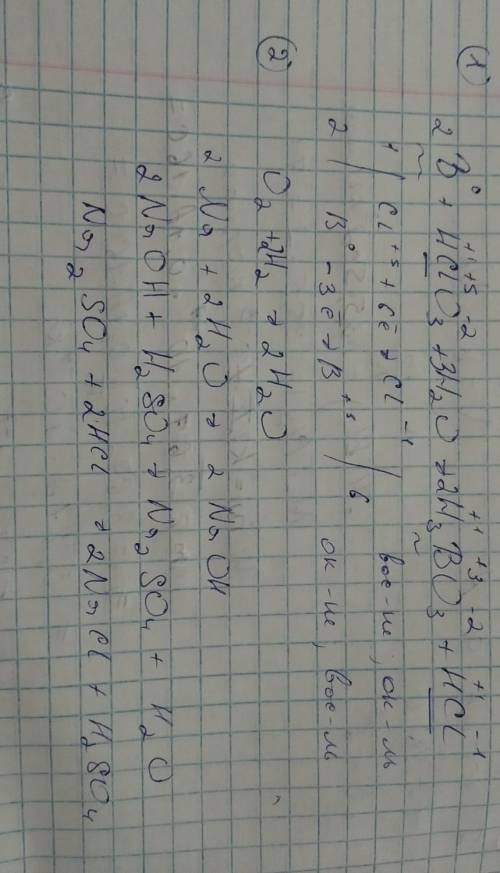 1
2B⁰ + H⁺¹Cl⁺⁵O₃⁻² + 3H₂O → 2H₃⁺¹B⁺³O₃⁻² + H⁺¹Cl⁻¹
1 / Cl⁺⁵ + 6ē → Cl⁻¹ вос-ие, ок-ль
2 / B⁰ - 3ē → B⁺³ / 6 ок-ие, вос-ль
2
O₂ + 2H₂ → 2H₂O
2Na + 2H₂O → 2NaOH
2NaOH + H₂SO₄ → Na₂SO₄ + H₂O
Na₂SO₄ + 2HCl → 2NaCl + H₂SO₄